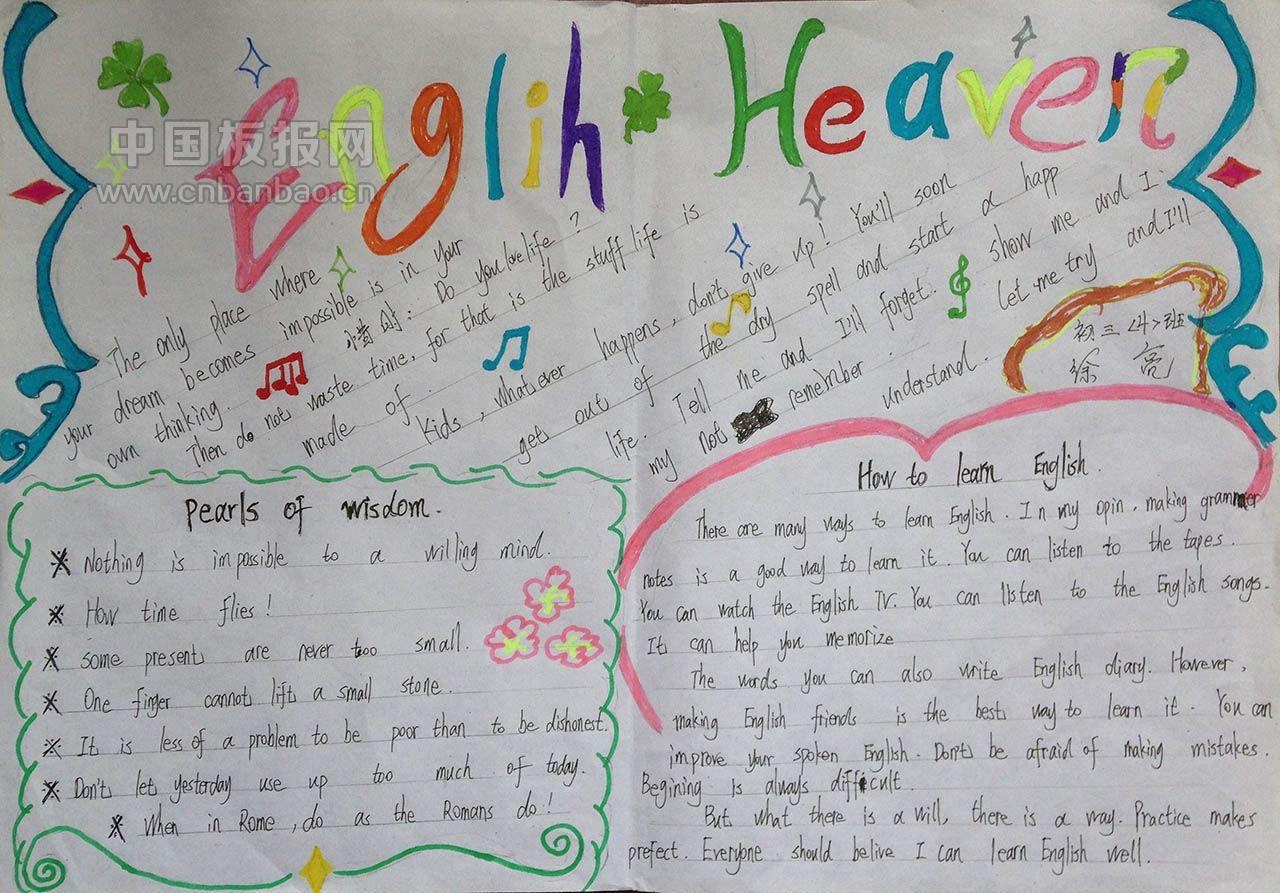 Englih Heaven
中国板报网
www.cnbanbao.cn
The only place where
your dream becomes impossible is in your
own thinking. 惜时: Do you love life ?
Then do not waste time, for that is the stuff life is
made of.
Kids, whatever happens, don't give up! You'll soon
get out of the dry spell and start a happ
life. Tell me and I'll forget. show me and I
my not remember. Let me try and I'll
understand.
初三〈4〉班
徐亮
Pearls of wisdom.
Nothing is impossible to a willing mind.
How time flies!
Some presents are never too small.
One finger cannot lift a small stone.
It is less of a problem to be poor than to be dishonest.
Don't let yesterday use up too much of today.
When in Rome, do as the Romans do!
How to learn English.
There are many ways to learn English. In my opin, making grammer
notes is a good way to learn it. You can listen to the tapes.
You can watch the English TV. You can listen to the English songs.
It can help you memorize
The words you can also write English diary. However,
making English friends is the best way to learn it. You can
improve your spoken English. Don't be afraid of making mistakes.
Begining is always difficult.
But what there is a will, there is a way. Practice makes
prefect. Everyone should belive I can learn English well.